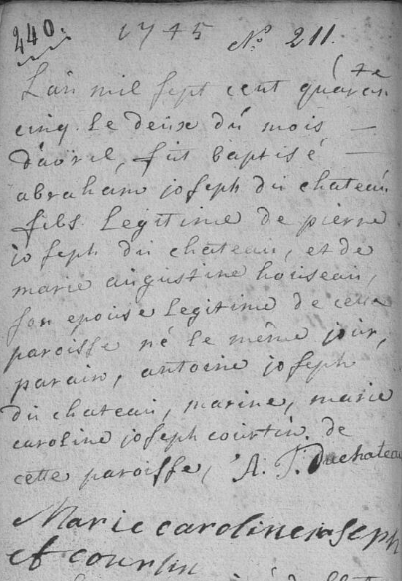 240.
1745 N.o 211.
L'an mil sept cent quaran(te
cinq. Le deux du mois —
d'avril, fut baptisé —
abraham joseph du chateau
fils Legitime de pierre
joseph du chateau, et de
marie augustine houseau,
son epouse Legitime de cette
paroisse né le même jour,
parain, antoine joseph
du chateau, marine, marie
caroline joseph courtin de
cette paroisse, A. J. Duchateau
Marie caroline joseph
et courtin